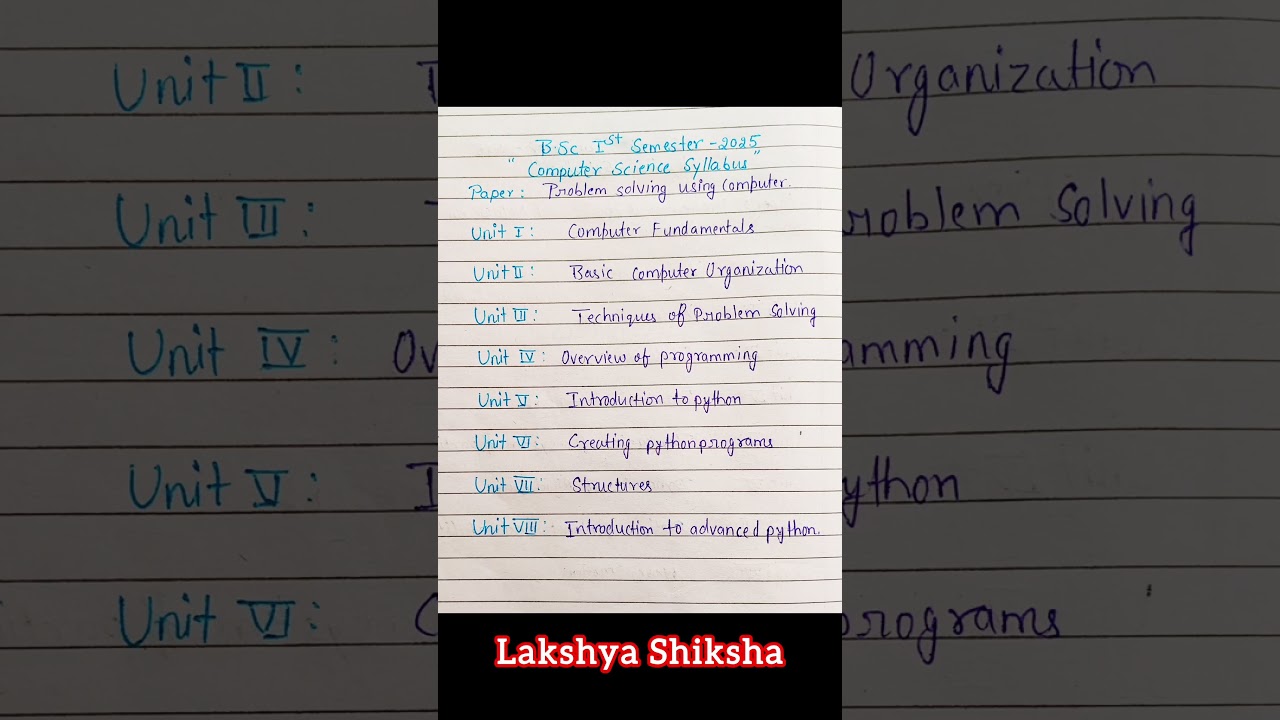 B.Sc Ist Semester -2025
"Computer Science Syllabus"
Paper: Problem solving using Computer.
Unit I: Computer Fundamentals
Unit II: Basic Computer Organization
Unit III: Techniques of Problem Solving
Unit IV: Overview of programming
Unit V: Introduction to python
Unit VI: Creating python programs
Unit VII: Structures
Unit VIII: Introduction to advanced python.
Lakshya Shiksha
Unit II: Organization
Unit III: roblem Solving
Unit IV: Ov amming
Unit V: ython
Unit VI: programs